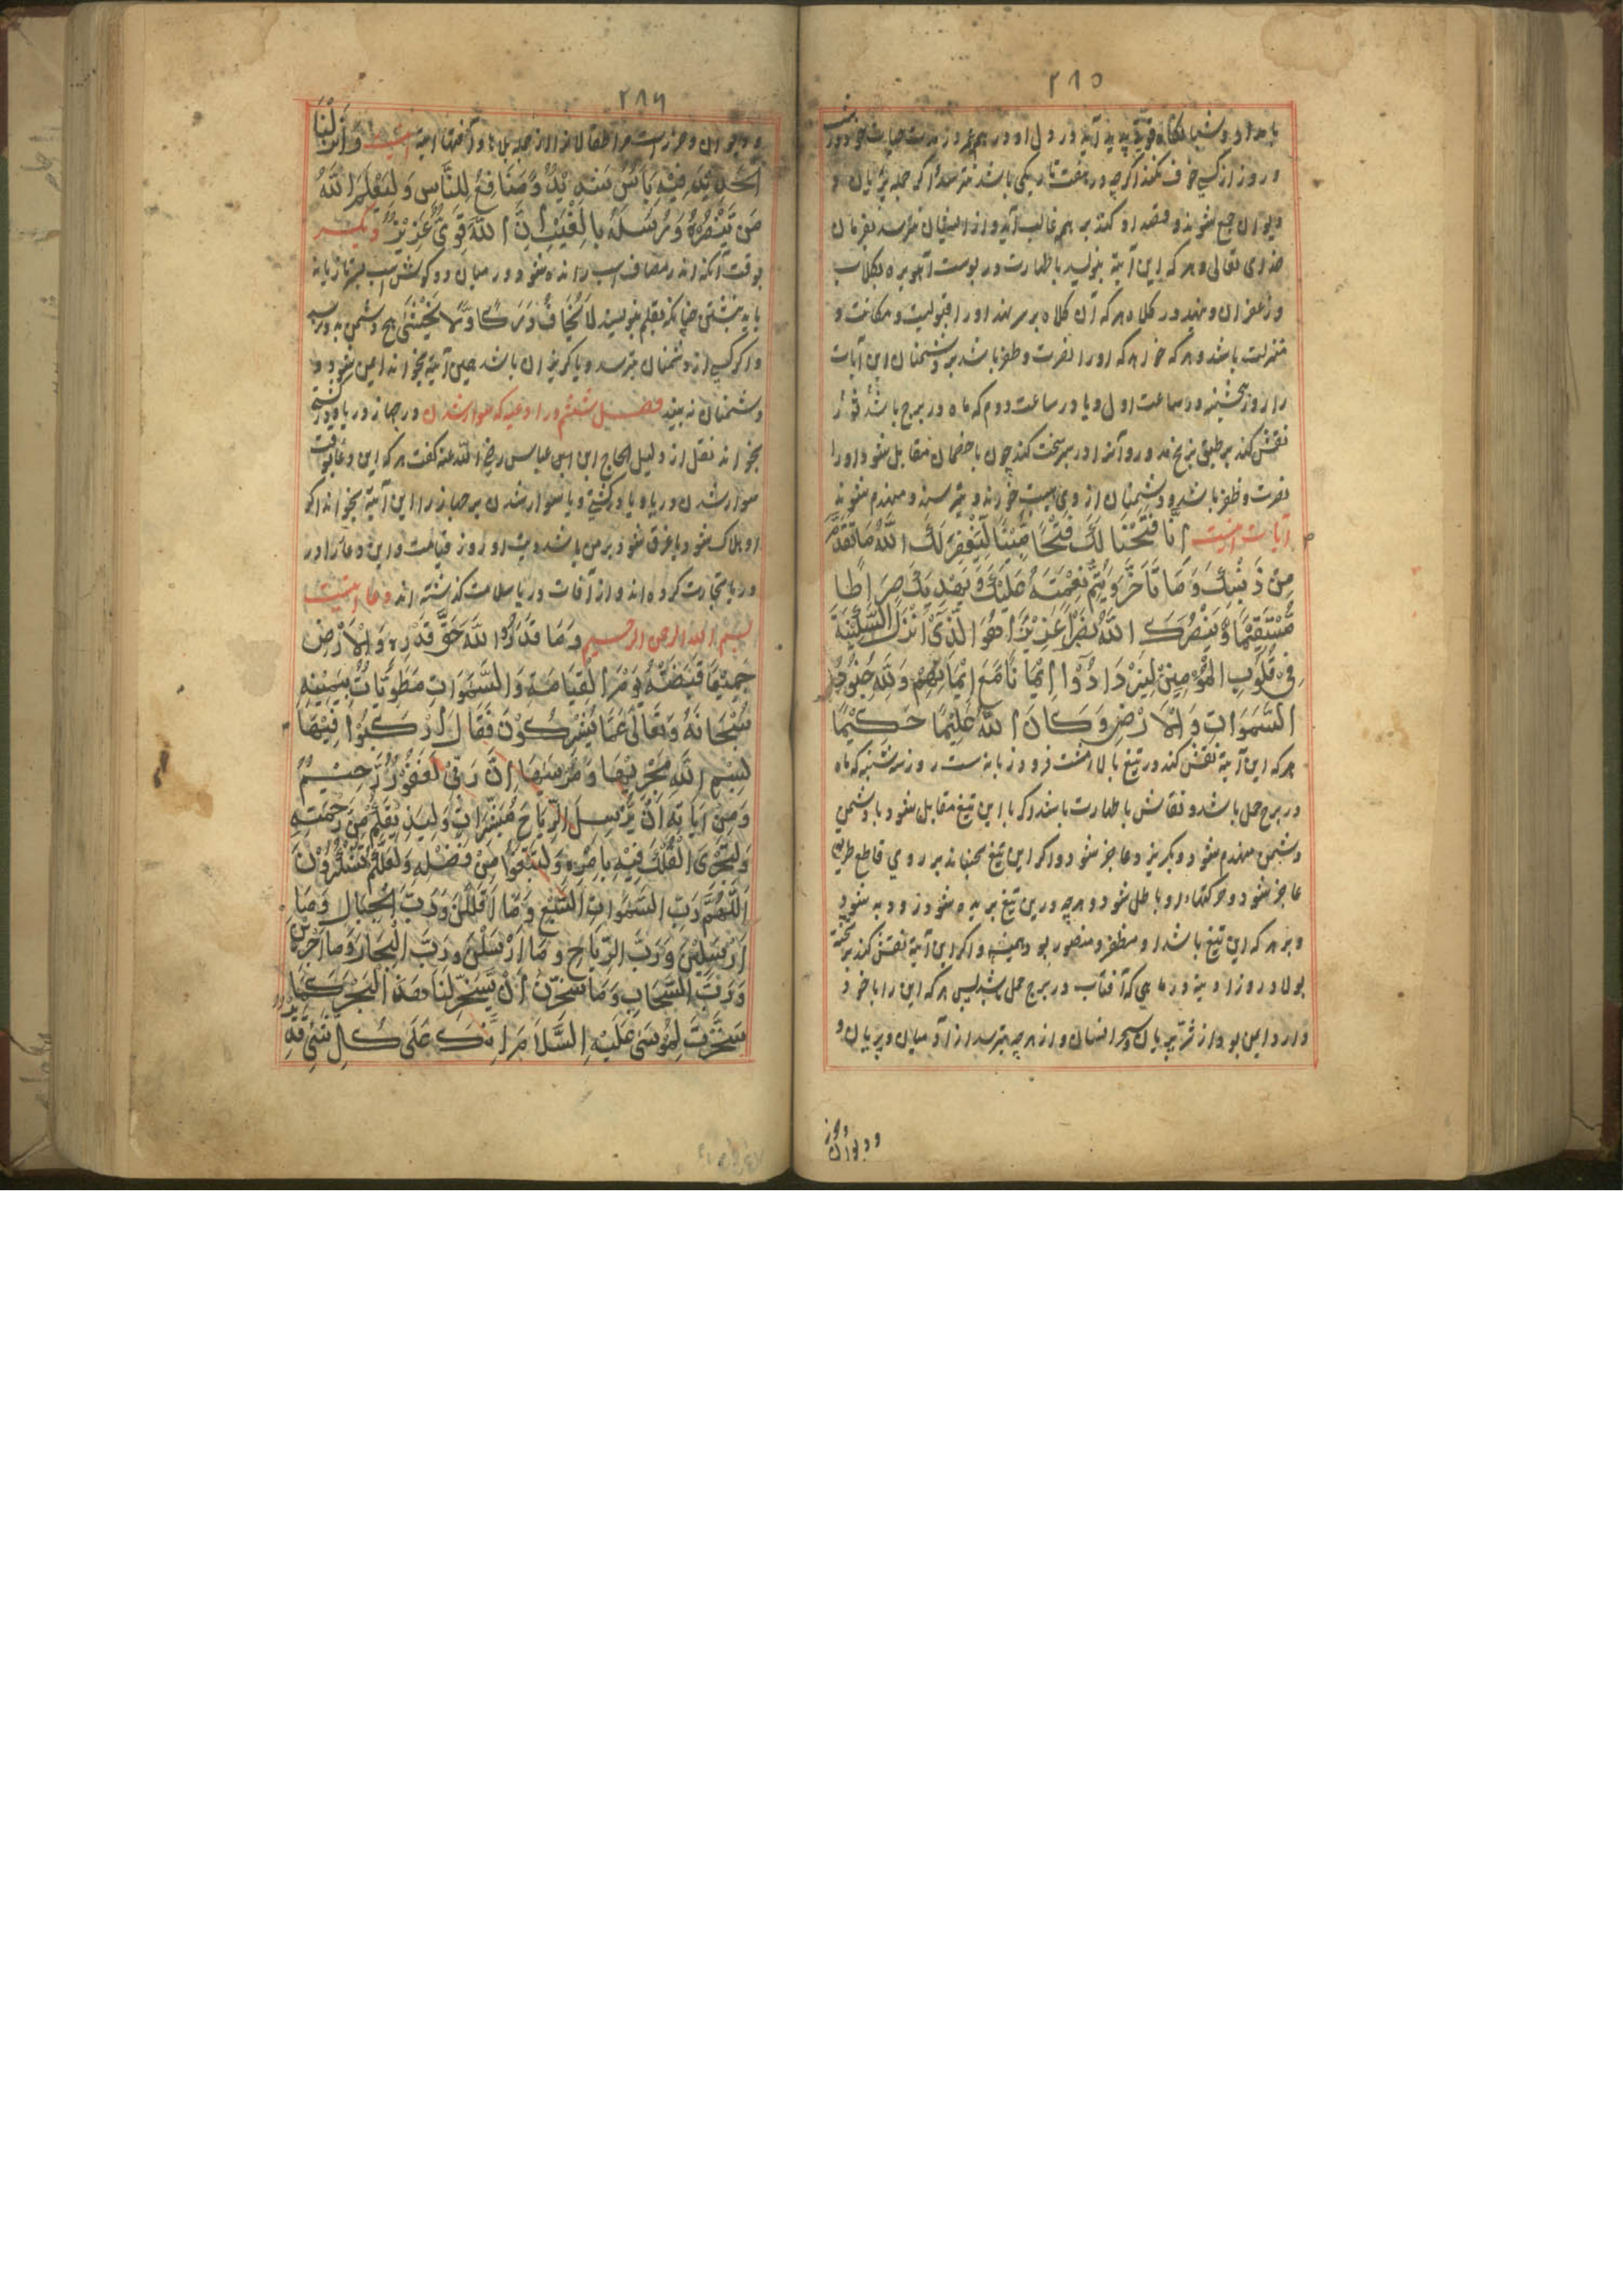 ۲۸۵
بامداد و شبانگاه قوتی پدید آید در دل او در همه عمر و در مدت حیات خود در
و روز از کسی خوف نکند اگرچه در هفت تاریکی باشد نترسد و اگر جمله پریان و
دیوان جمع شوند و قصد او کنند بر همه غالب آید و از ایشان نترسد بفرمان
خدای تعالی و هر که این آیة بنویسد با طهارت در پوست آهو بره بگلاب
و زعفران و بنهد در کلاه هر که آن کلاه بر سر نهد او را قبولیت و مکانت و
منزلت باشد و هر که خواهد که او را نصرت و ظفر باشد بر دشمنان این آیات
را روز پنجشنبه در ساعت اول و یا در ساعت دوم که ماه در برج باشد ثور
نقش کند بر طبق برنج مدور و آنرا در سر سخت کند چون با خصمان مقابل شود او را
نصرت و ظفر باشد و دشمنان از وی هیبت خورند و بترسند و منهزم شوند
آیات اینست إِنَّا فَتَحْنَا لَكَ فَتْحًا مُّبِينًا لِّيَغْفِرَ لَكَ اللَّهُ مَا تَقَدَّمَ
مِنْ ذَنْبِكَ وَمَا تَأَخَّرَ وَيُتِمَّ نِعْمَتَهُ عَلَيْكَ وَيَهْدِيَكَ صِرَاطًا
مُّسْتَقِيمًا وَّيَنْصُرَكَ اللَّهُ نَصْرًا عَزِيزًا هُوَ الَّذِي أَنْزَلَ السَّكِينَةَ
فِي قُلُوبِ الْمُؤْمِنِينَ لِيَزْدَادُوا إِيمَانًا مَّعَ إِيمَانِهِمْ وَلِلَّهِ جُنُودُ
السَّمَوَاتِ وَالْأَرْضِ وَكَانَ اللَّهُ عَلِيمًا حَكِيمًا
هر که این آیة نقش کند در تیغ بالا انگشت فرود زبانه ست روز سه شنبه که ماه
در برج حمل باشد و نقاش با طهارت باشد و اگر با این تیغ مقابل شود با دشمن
دشمن منهزم شود و بگریزد و عاجز شود و اگر این تیغ بجنباند بر روی قاطع طریق
عاجز شود و حرکتهاء او باطل شود و هرچه درین تیغ بریده شود زود به شود
و بر هر که این تیغ باشد او مظفر و منصور بود همیشه و اگر این آیة نقش کند بر تخته
پولاد روز آدینه در ماهی که آفتاب در برج حمل باشد پس هر که این را با خود
دارد ایمن بود از شر پریان و سحر انسان و از هرچه بترسد از آدمیان و پریان و
و دیوان و حرز
۲۸۶
و دیوان و حرز است مر اطفالانرا از جمله بلا و آفتها آیة اینست وَأَنْزَلْنَا
الْحَدِيدَ فِيهِ بَأْسٌ شَدِيدٌ وَّمَنَافِعُ لِلنَّاسِ وَلِيَعْلَمَ اللَّهُ
مَن يَّنْصُرُهُ وَرُسُلَهُ بِالْغَيْبِ إِنَّ اللَّهَ قَوِيٌّ عَزِيزٌ و دیگر
بوقت آنکه اندر مصاف اسپ رانده شود در میان دو گوش اسپ بسر تازیانه
باید نبشتن چنانکه بقلم بنویسد لَا تَخَافُ دَرَكًا وَّلَا تَخْشَى هیچ دشمن بدو نرسد
و اگر کسی از دشمنان بترسد و یا گریزان باشد همین آیة بخواند ایمن شود و
دشمنان نه بیند فصل ششم در ادعیه که سوار شدن در جهاز و دریا و کشتی
بخواند نقل از دلیل الحاج ابن عباس رضی الله عنه گفت هر که این دعا بوقت
سوار شدن دریا و یا در کشتی و یا سوار شدن بر جهاز را این آیة بخواند اگر
او هلاک شود یا غرق شود بر من باشد دیت او روز قیامت و این دعا را در
دریا تجارت کرده اند و از آفات دریا سلامت گذشته اند دعا اینست
بسم الله الرحمن الرحیم وَمَا قَدَرُوا اللَّهَ حَقَّ قَدْرِهِ وَالْأَرْضُ
جَمِيعًا قَبْضَتُهُ يَوْمَ الْقِيَامَةِ وَالسَّمَوَاتُ مَطْوِيَّاتٌ بِيَمِينِهِ
سُبْحَانَهُ وَتَعَالَى عَمَّا يُشْرِكُونَ فَقَالَ ارْكَبُوا فِيهَا
بِسْمِ اللَّهِ مَجْرِيهَا وَمُرْسَاهَا إِنَّ رَبِّي لَغَفُورٌ رَّحِيمٌ
وَمِنْ آيَاتِهِ أَنْ يُّرْسِلَ الرِّيَاحَ مُبَشِّرَاتٍ وَّلِيُذِيقَكُمْ مِّنْ رَّحْمَتِهِ
وَلِتَجْرِيَ الْفُلْكُ فِيهِ بِأَمْرِهِ وَلِتَبْتَغُوا مِنْ فَضْلِهِ وَلَعَلَّكُمْ تَشْكُرُونَ
اللَّهُمَّ رَبَّ السَّمَوَاتِ السَّبْعِ وَمَا أَقْلَلْنَ وَرَبَّ الْجِبَالِ وَمَا
أَرْسَيْنَ وَرَبَّ الرِّيَاحِ وَمَا أَرْسَلْنَ وَرَبَّ الْبِحَارِ وَمَا أَجْرَيْنَ
وَرَبَّ السَّحَابِ وَمَا سَخَّرْنَ أَنْ تُسَخِّرَ لَنَا هَذَا الْبَحْرَ كَمَا
سَخَّرْتَ لِمُوسَى عَلَيْهِ السَّلَامُ إِنَّكَ عَلَى كُلِّ شَيْءٍ قَدِيرٌ